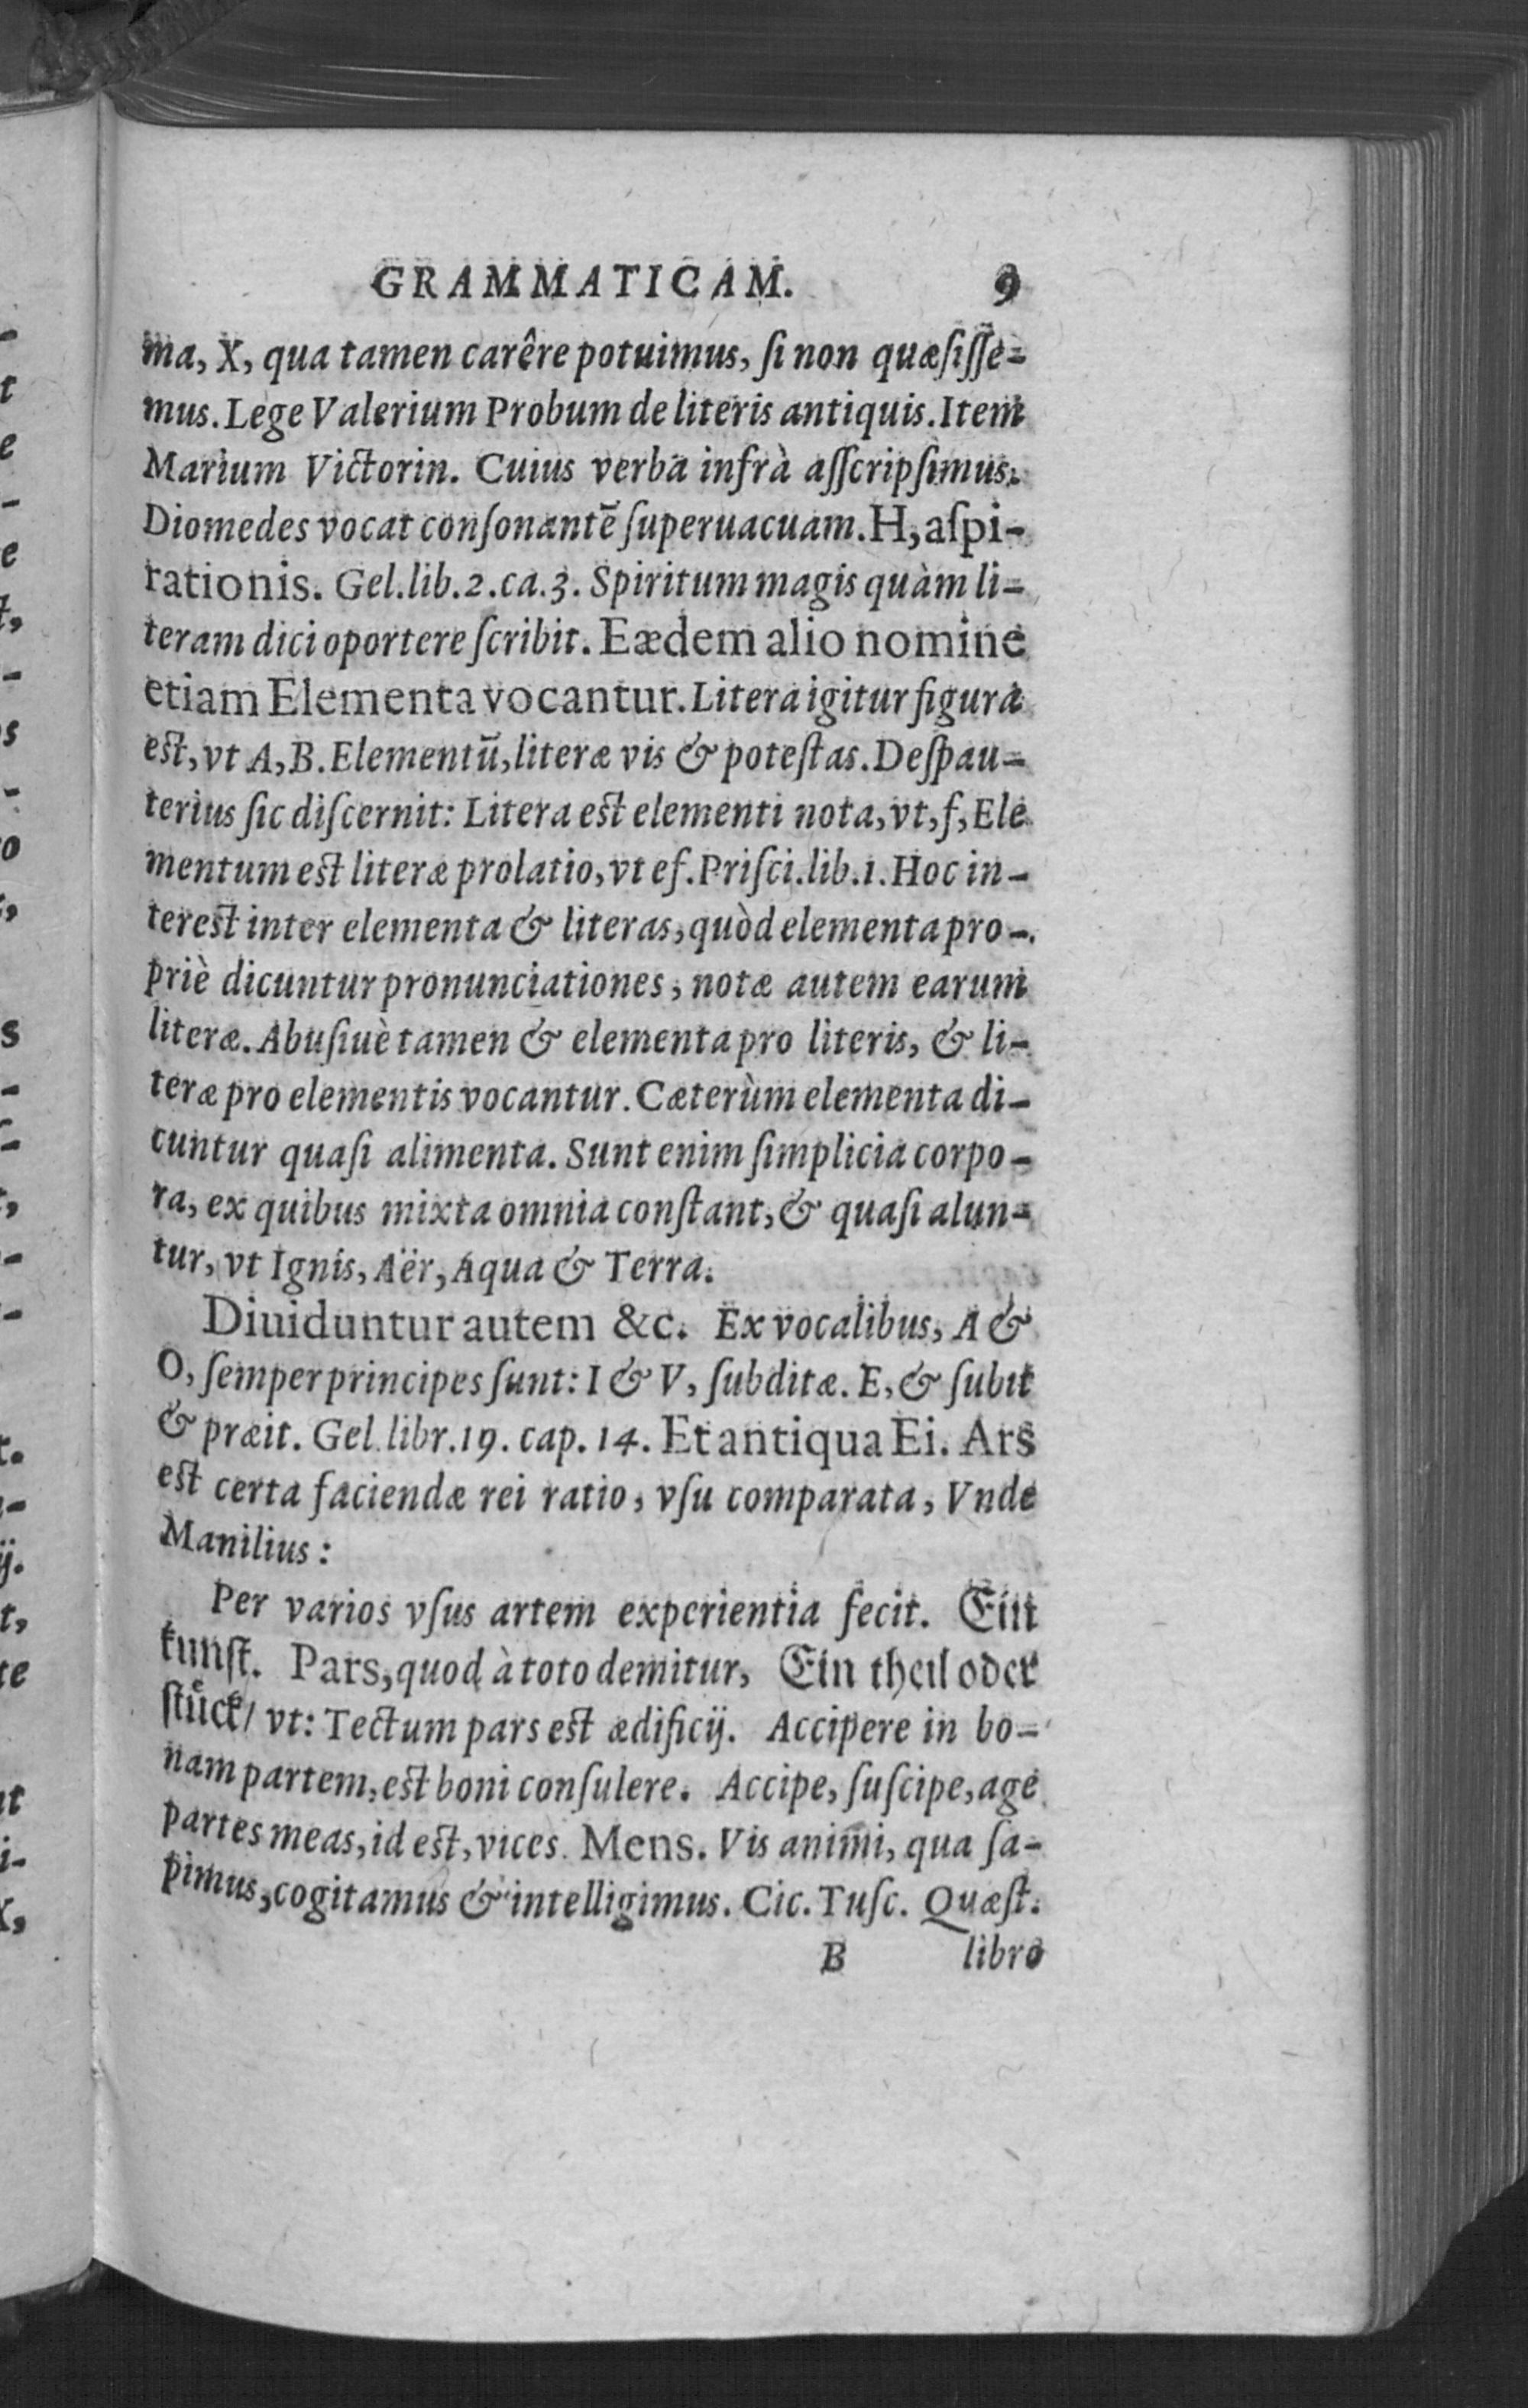 GRAMMATICAM. 9
ma, X, qua tamen carêre potuimus, ſi non quæſiſſe-
mus. Lege Valerium Probum de literis antiquis. Item
Marium Victorin. Cuius verba infrà aſſcripſimus.
Diomedes vocat conſonantē ſuperuacuam. H, aſpi-
rationis. Gel. lib. 2. ca. 3. Spiritum magis quàm li-
teram dici oportere ſcribit. Eædem alio nomine
etiam Elementa vocantur. Litera igitur figura
est, vt A, B. Elementū, literæ vis & poteſtas. Deſpau-
terius ſic diſcernit: Litera est elementi nota, vt, f, Ele
mentum est literæ prolatio, vt ef. Priſci. lib. 1. Hoc in-
terest inter elementa & literas, quòd elementa pro-
priè dicuntur pronunciationes, notæ autem earum
literæ. Abuſiuè tamen & elementa pro literis, & li-
teræ pro elementis vocantur. Cæterùm elementa di-
cuntur quaſi alimenta. Sunt enim ſimplicia corpo-
ra, ex quibus mixta omnia conſtant, & quaſi alun-
tur, vt Ignis, Aër, Aqua & Terra.
Diuiduntur autem &c. Ex vocalibus, A &
O, ſemper principes ſunt: I & V, ſubditæ. E, & ſubit
& præit. Gel. libr. 19. cap. 14. Et antiqua Ei. Ars
est certa faciendæ rei ratio, vſu comparata, Vnde
Manilius:
Per varios vſus artem experientia fecit. Ein
kunſt. Pars, quod à toto demitur, Ein theil oder
ſtuͤck/ vt: Tectum pars est ædificij. Accipere in bo-
nam partem, est boni conſulere. Accipe, ſuſcipe, age
partes meas, id est, vices. Mens. Vis animi, qua ſa-
pimus, cogitamus & intelligimus. Cic. Tuſc. Quæſt.
B libro